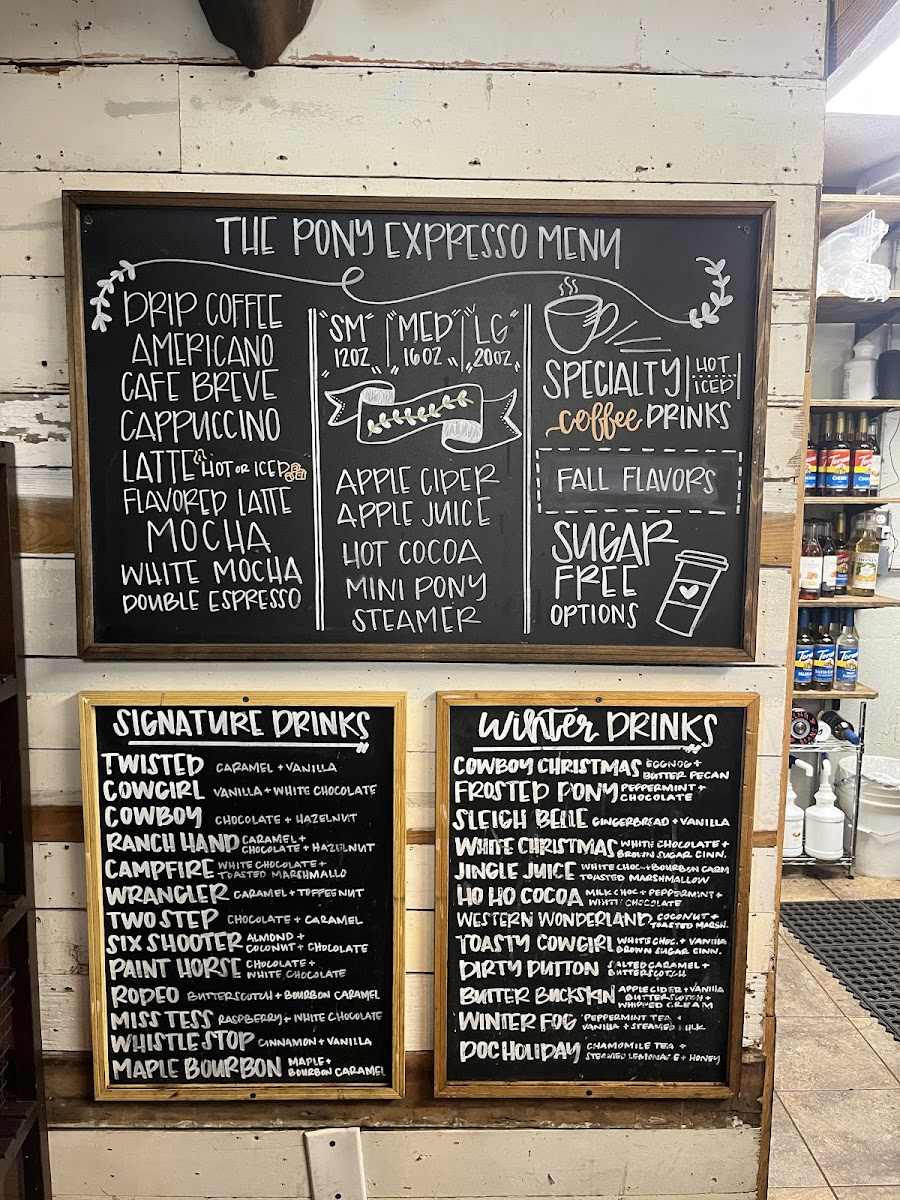 THE PONY EXPRESSO MENU
DRIP COFFEE
AMERICANO
CAFE BREVE
CAPPUCCINO
LATTE HOT OR ICED
FLAVORED LATTE
MOCHA
WHITE MOCHA
DOUBLE ESPRESSO
"SM" "MED" "LG"
12OZ 16OZ 20OZ
APPLE CIDER
APPLE JUICE
HOT COCOA
MINI PONY
STEAMER
SPECIALTY HOT
ICED
coffee DRINKS
FALL FLAVORS
SUGAR
FREE
OPTIONS
SIGNATURE DRINKS
TWISTED CARAMEL + VANILLA
COWGIRL VANILLA + WHITE CHOCOLATE
COWBOY CHOCOLATE + HAZELNUT
RANCH HAND CARAMEL +
CHOCOLATE + HAZELNUT
CAMPFIRE WHITE CHOCOLATE +
TOASTED MARSHMALLO
WRANGLER CARAMEL + TOFFEENUT
TWO STEP CHOCOLATE + CARAMEL
SIX SHOOTER ALMOND +
COCONUT + CHOCOLATE
PAINT HORSE CHOCOLATE +
WHITE CHOCOLATE
RODEO BUTTERSCOTCH + BOURBON CARAMEL
MISS TESS RASPBERRY + WHITE CHOCOLATE
WHISTLE STOP CINNAMON + VANILLA
MAPLE BOURBON MAPLE +
BOURBON CARAMEL
Winter DRINKS
COWBOY CHRISTMAS EGGNOG +
BUTTER PECAN
FROSTED PONY PEPPERMINT +
CHOCOLATE
SLEIGH BELLE GINGERBREAD + VANILLA
WHITE CHRISTMAS WHITE CHOCOLATE +
BROWN SUGAR CINN.
JINGLE JUICE WHITE CHOC + BOURBON CARM
TOASTED MARSHMALLOW
HO HO COCOA MILK CHOC + PEPPERMINT +
WHITE CHOCOLATE
WESTERN WONDERLAND COCONUT +
TOASTED MARSH.
TOASTY COWGIRL WHITE CHOC. + VANILLA
BROWN SUGAR CINN.
DIRTY DUTTON SALTED CARAMEL +
BUTTERSCOTCH
BUTTER BUCKSKIN APPLE CIDER + VANILLA
BUTTERSCOTCH +
WHIPPED CREAM
WINTER FOG PEPPERMINT TEA +
VANILLA + STEAMED MILK
DOC HOLIDAY CHAMOMILE TEA +
STEAMED LEMONADE + HONEY